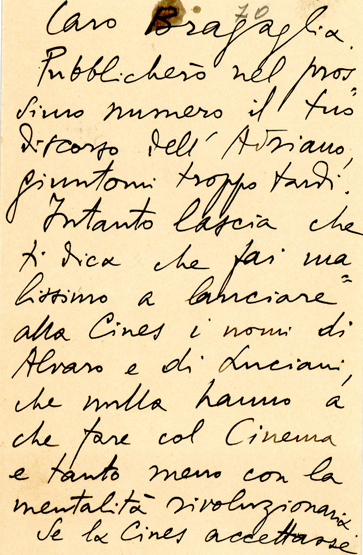 70
Caro Bragaglia.
Pubblicherò nel pros=
simo numero il tuo
discorso dell'Adriano,
giuntomi troppo tardi.
Intanto lascia che
ti dica che fai ma=
lissimo a lanciare
alla Cines i nomi di
Alvaro e di Luciani,
che nulla hanno a
che fare col Cinema
e tanto meno con la
mentalità rivoluzionaria
Se la Cines accettasse